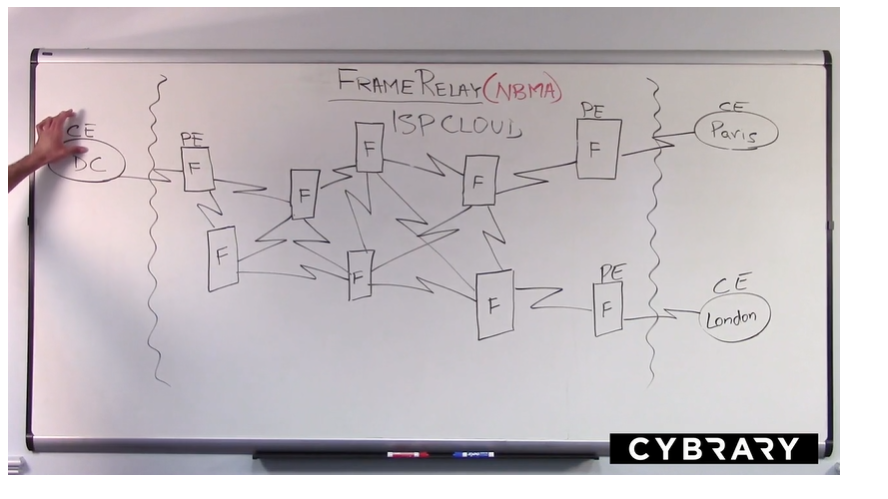 FRAME RELAY (NBMA)
ISP CLOUD
CE
DC
PE
F
F
F
F
F
F
F
PE
F
PE
F
CE
Paris
CE
London
CYBRARY